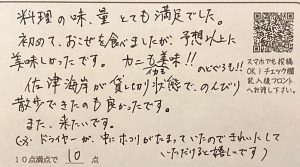 料理の味、量 とても満足でした。
初めて、おこぜを食べましたが、予想以上に
美味しかったです。カニも美味!!
イカも
のどぐろも!!
佐津海岸が貸し切り状態で、のんびり
散歩できたのも良かったです。
また、来たいです。
(※ドライヤーが、中にホコリがたまっていたのできれいにして
いただけると嬉しいです)
10点満点で 10 点
スマホでも投稿
OK!チェック欄
記入後フロント
へお渡し下さい。